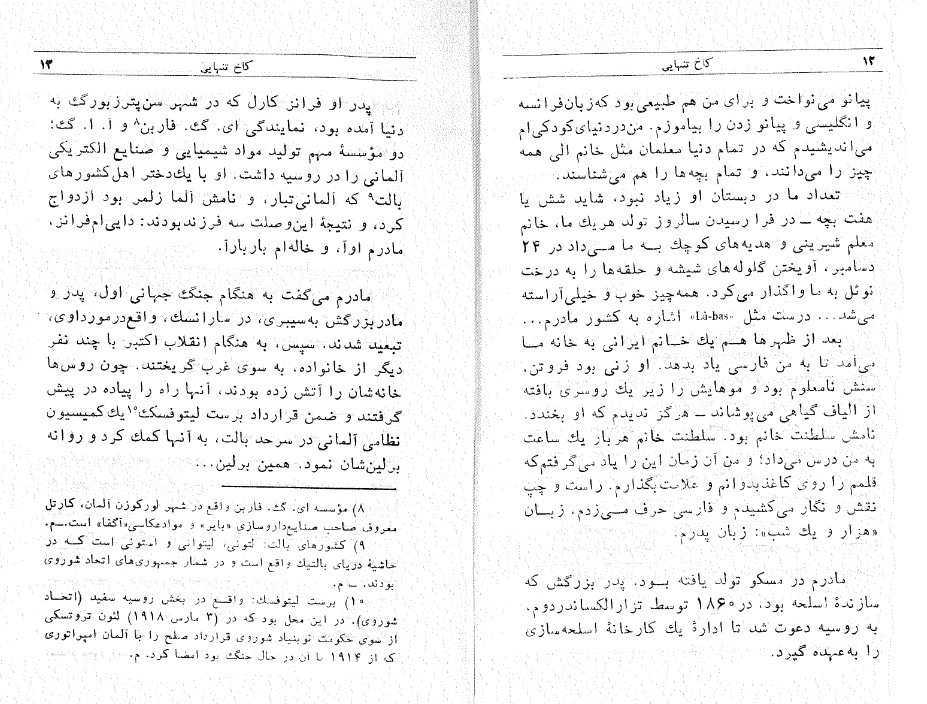 ۱۲ کاخ تنهایی
پیانو می‌نواخت و برای من هم طبیعی بود که زبان فرانسه
و انگلیسی و پیانو زدن را بیاموزم. من در دنیای کودکی‌ام
می‌اندیشیدم که در تمام دنیا معلمان مثل خانم الی همه
چیز را می‌دانند، و تمام بچه‌ها را هم می‌شناسند.
تعداد ما در دبستان او زیاد نبود، شاید شش یا
هفت بچه ــ در فرا رسیدن سالروز تولد هریك ما، خانم
معلم شیرینی و هدیه‌های کوچك به ما می‌داد در ۲۴
دسامبر، آویختن گلوله‌های شیشه و حلقه‌ها را به درخت
نوئل به ما واگذار می‌کرد. همه‌چیز خوب و خیلی آراسته
می‌شد... درست مثل «Là-bas» اشاره به کشور مادرم...
بعد از ظهرها هم یك خانم ایرانی به خانه ما
می‌آمد تا به من فارسی یاد بدهد. او زنی بود فروتن.
سنش نامعلوم بود و موهایش را زیر یك روسری بافته
از الیاف گیاهی می‌پوشاند ــ هرگز ندیدم که او بخندد.
نامش سلطنت خانم بود. سلطنت خانم هربار یك ساعت
به من درس می‌داد؛ و من آن زمان این را یاد می‌گرفتم‌که
قلمم را روی کاغذ بدوانم و علامت بگذارم. راست و چپ
نقش و نگار می‌کشیدم و فارسی حرف می‌زدم، زبان
«هزار و یك شب»: زبان پدرم.
مادرم در مسکو تولد یافته بود. پدر بزرگش که
سازندهٔ اسلحه بود، در ۱۸۶۰ توسط تزار الکساندر دوم،
به روسیه دعوت شد تا ادارهٔ یك کارخانهٔ اسلحه‌سازی
را به‌عهده گیرد.
کاخ تنهایی ۱۳
پدر او فرانز کارل که در شهر سن‌پترزبورگ به
دنیا آمده بود، نمایندگی ای. گ. فاربن۸ و آ. ا. گ؛
دو مؤسسهٔ مهم تولید مواد شیمیایی و صنایع الکتریکی
آلمانی را در روسیه داشت. او با یك‌دختر اهل‌کشورهای
بالت۹ که آلمانی‌تبار، و نامش آلما زلمر بود ازدواج
کرد، و نتیجهٔ این وصلت سه فرزند بودند: دایی‌ام فرانز،
مادرم اوآ، و خاله‌ام باربارآ.
مادرم می‌گفت به هنگام جنگ جهانی اول، پدر و
مادر بزرگش به‌سیبری، در سارانسك، واقع‌درمورداوی،
تبعید شدند. سپس، به هنگام انقلاب اکتبر با چند نفر
دیگر از خانواده، به سوی غرب گریختند. چون روس‌ها
خانه‌شان را آتش زده بودند، آنها راه را پیاده در پیش
گرفتند و ضمن قرارداد برست لیتوفسك۱۰ یك کمیسیون
نظامی آلمانی در سرحد بالت، به آنها کمك کرد و روانه
برلین‌شان نمود. همین برلین...
۸) مؤسسه ای. گ. فاربن واقع در شهر لورکوزن آلمان، کارتل
معروف صاحب صنایع‌داروسازی «بایر» و موادعکاسی«آگفا» است.ــم.
۹) کشورهای بالت: لتونی، لیتوانی و استونی است که در
حاشیهٔ دریای بالتیك واقع است و در شمار جمهوری‌های اتحاد شوروی
بودند. ــ م.
۱۰) برست لیتوفسك: واقع در بخش روسیه سفید (اتحاد
شوروی). در این محل بود که در (۳ مارس ۱۹۱۸) لئون تروتسکی
از سوی حکومت نوبنیاد شوروی قرارداد صلح را با آلمان امپراتوری
که از ۱۹۱۴ با آن در حال جنگ بود امضا کرد. م.